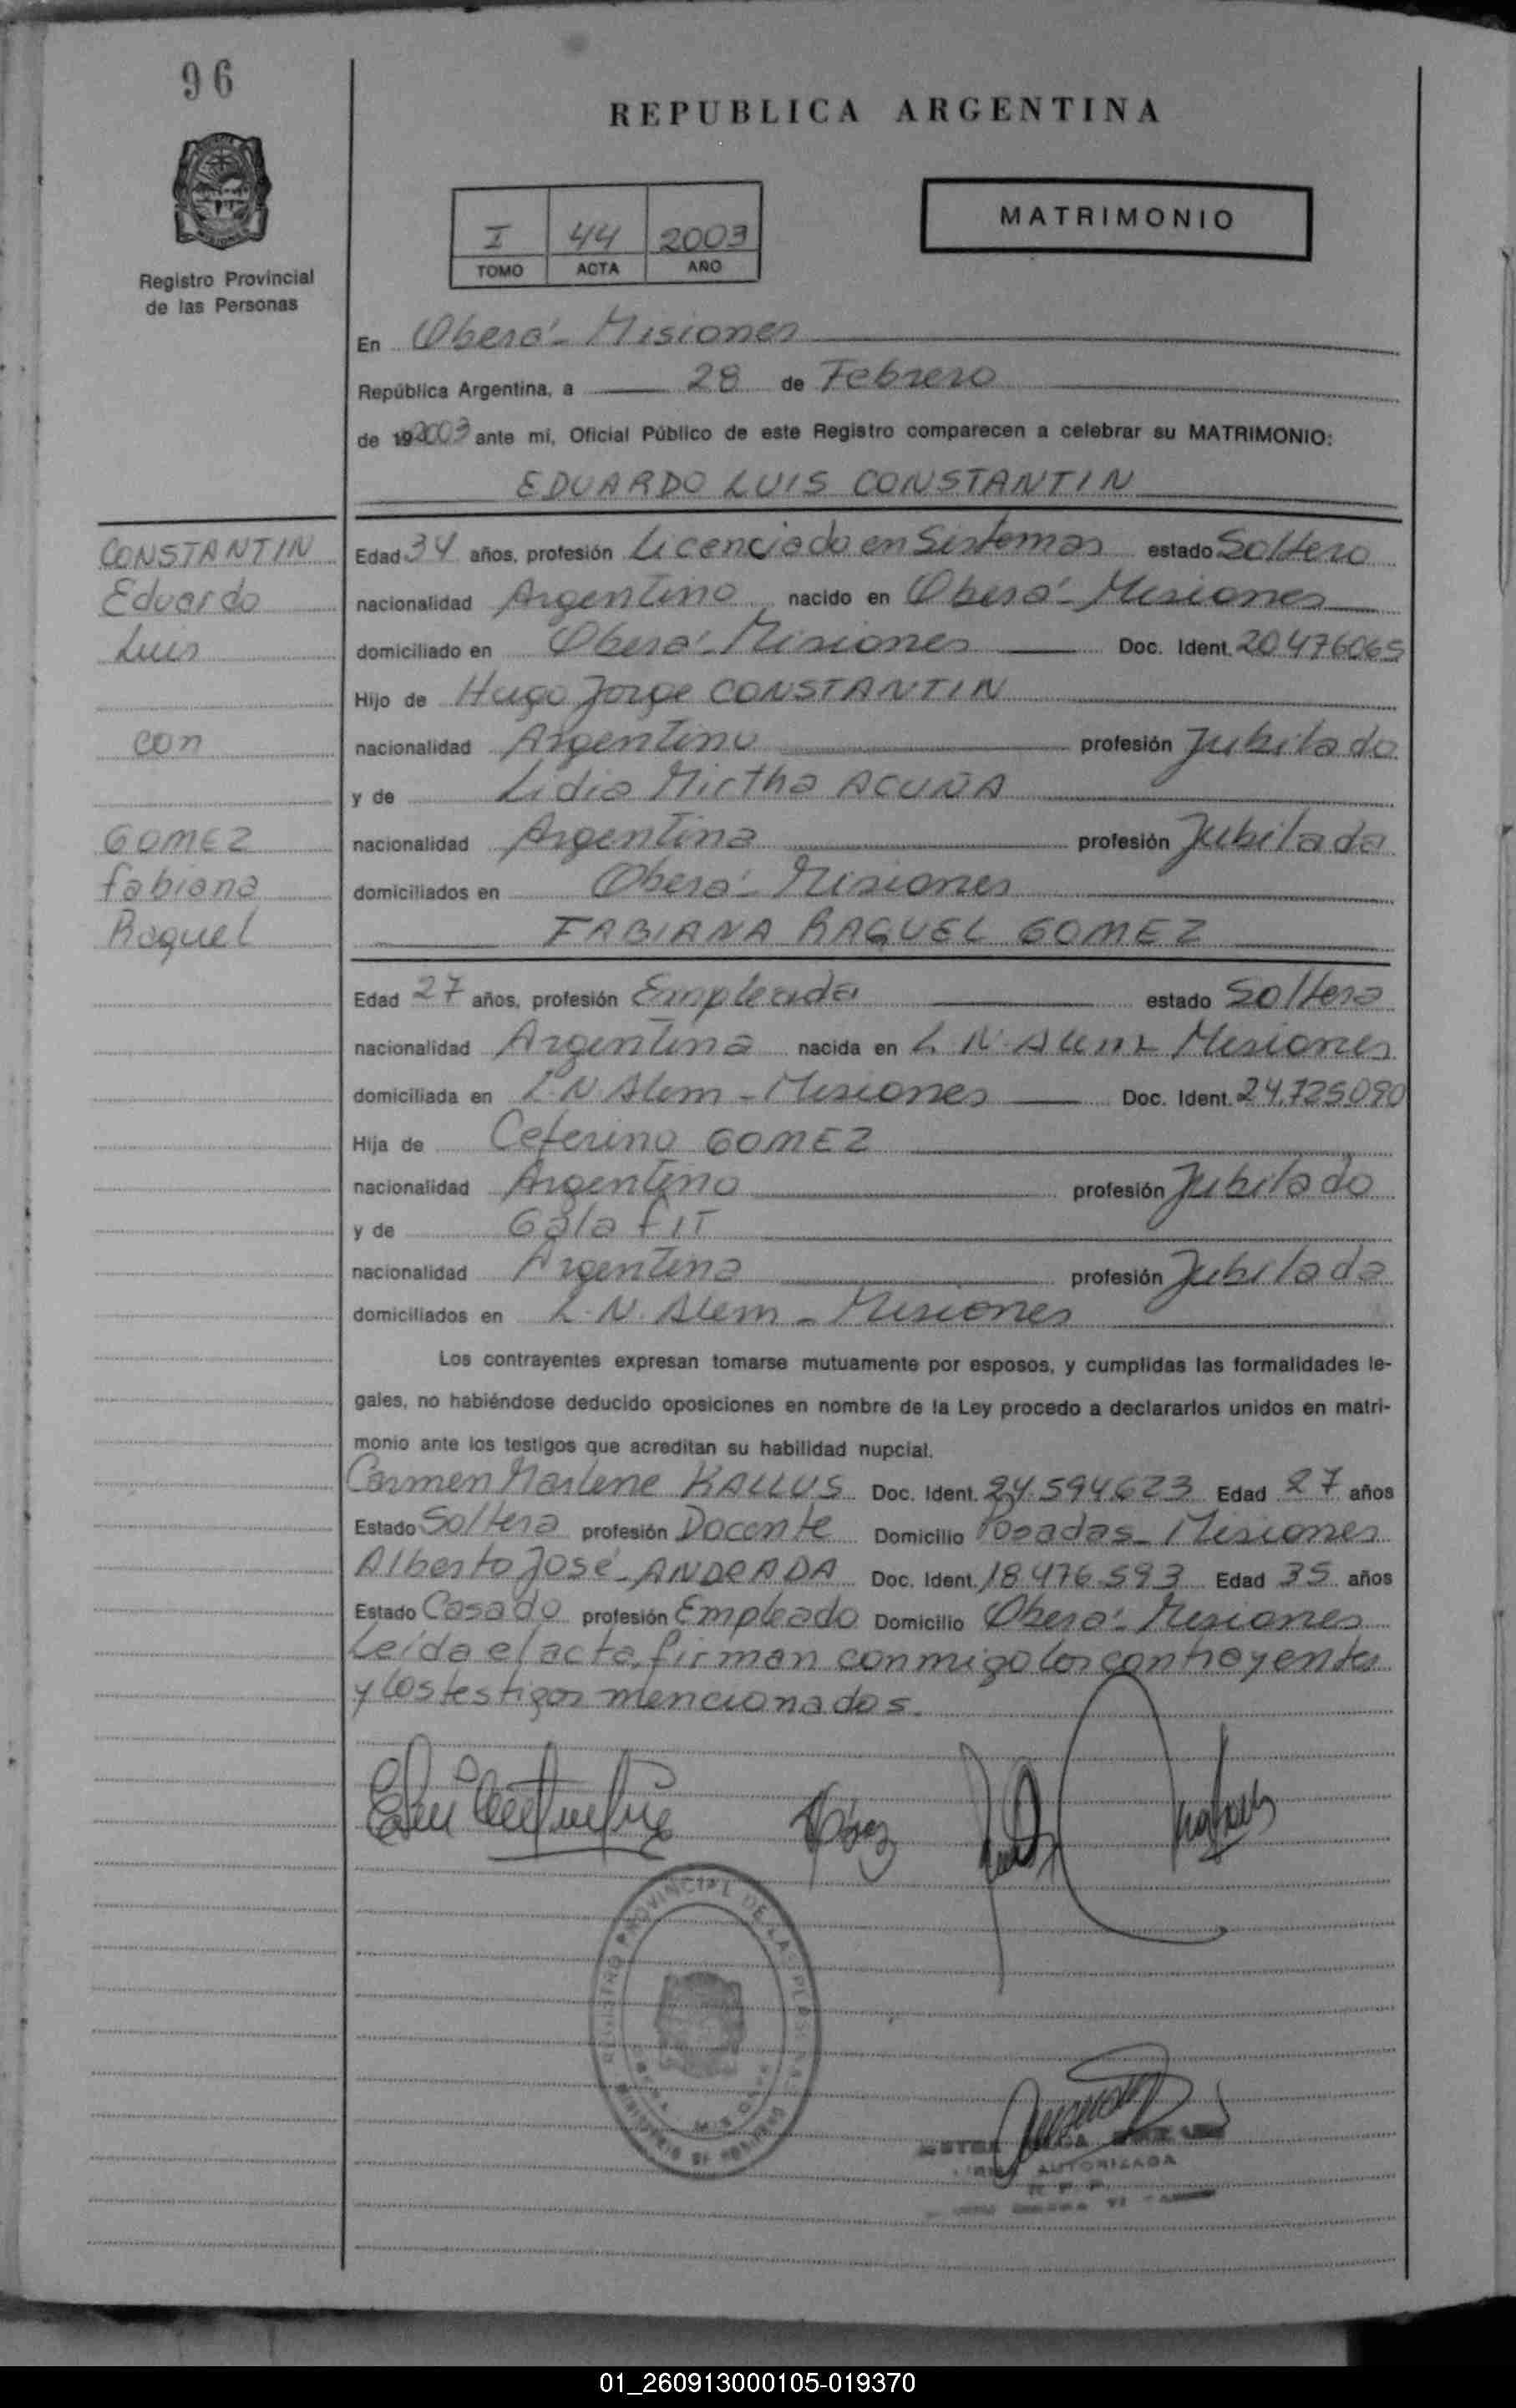 96
REPUBLICA ARGENTINA
MATRIMONIO
I 44 2003
TOMO ACTA AÑO
Registro Provincial
de las Personas
En Oberá - Misiones
República Argentina, a 28 de Febrero
de 192003 ante mí, Oficial Público de este Registro comparecen a celebrar su MATRIMONIO:
EDUARDO LUIS CONSTANTIN
CONSTANTIN
Eduardo
Luis
con
GOMEZ
Fabiana
Raquel
Edad 34 años, profesión Licenciado en Sistemas estado Soltero
nacionalidad Argentino nacido en Oberá - Misiones
domiciliado en Oberá - Misiones Doc. Ident. 20.476065
Hijo de Hugo Jorge CONSTANTIN
nacionalidad Argentino profesión Jubilado
y de Lidia Mirtha ACUÑA
nacionalidad Argentina profesión Jubilada
domiciliados en Oberá - Misiones
FABIANA RAQUEL GOMEZ
Edad 27 años, profesión Empleada estado Soltera
nacionalidad Argentina nacida en L. N. Alem - Misiones
domiciliada en L. N. Alem - Misiones Doc. Ident. 24.725.090
Hija de Ceferino GOMEZ
nacionalidad Argentino profesión Jubilado
y de Gala FIT
nacionalidad Argentina profesión Jubilada
domiciliados en L. N. Alem - Misiones
Los contrayentes expresan tomarse mutuamente por esposos, y cumplidas las formalidades le-
gales, no habiéndose deducido oposiciones en nombre de la Ley procedo a declararlos unidos en matri-
monio ante los testigos que acreditan su habilidad nupcial.
Carmen Marlene KALLUS Doc. Ident. 24.594.623 Edad 27 años
Estado Soltera profesión Docente Domicilio Posadas - Misiones
Alberto José ANDRADA Doc. Ident. 18.476.593 Edad 35 años
Estado Casado profesión Empleado Domicilio Oberá - Misiones
Leída el acta, firman conmigo los contrayentes
y los testigos mencionados.
REGISTRO PROVINCIAL DE LAS PERSONAS
AUTORIZADA
R. P. P.
01_260913000105-019370